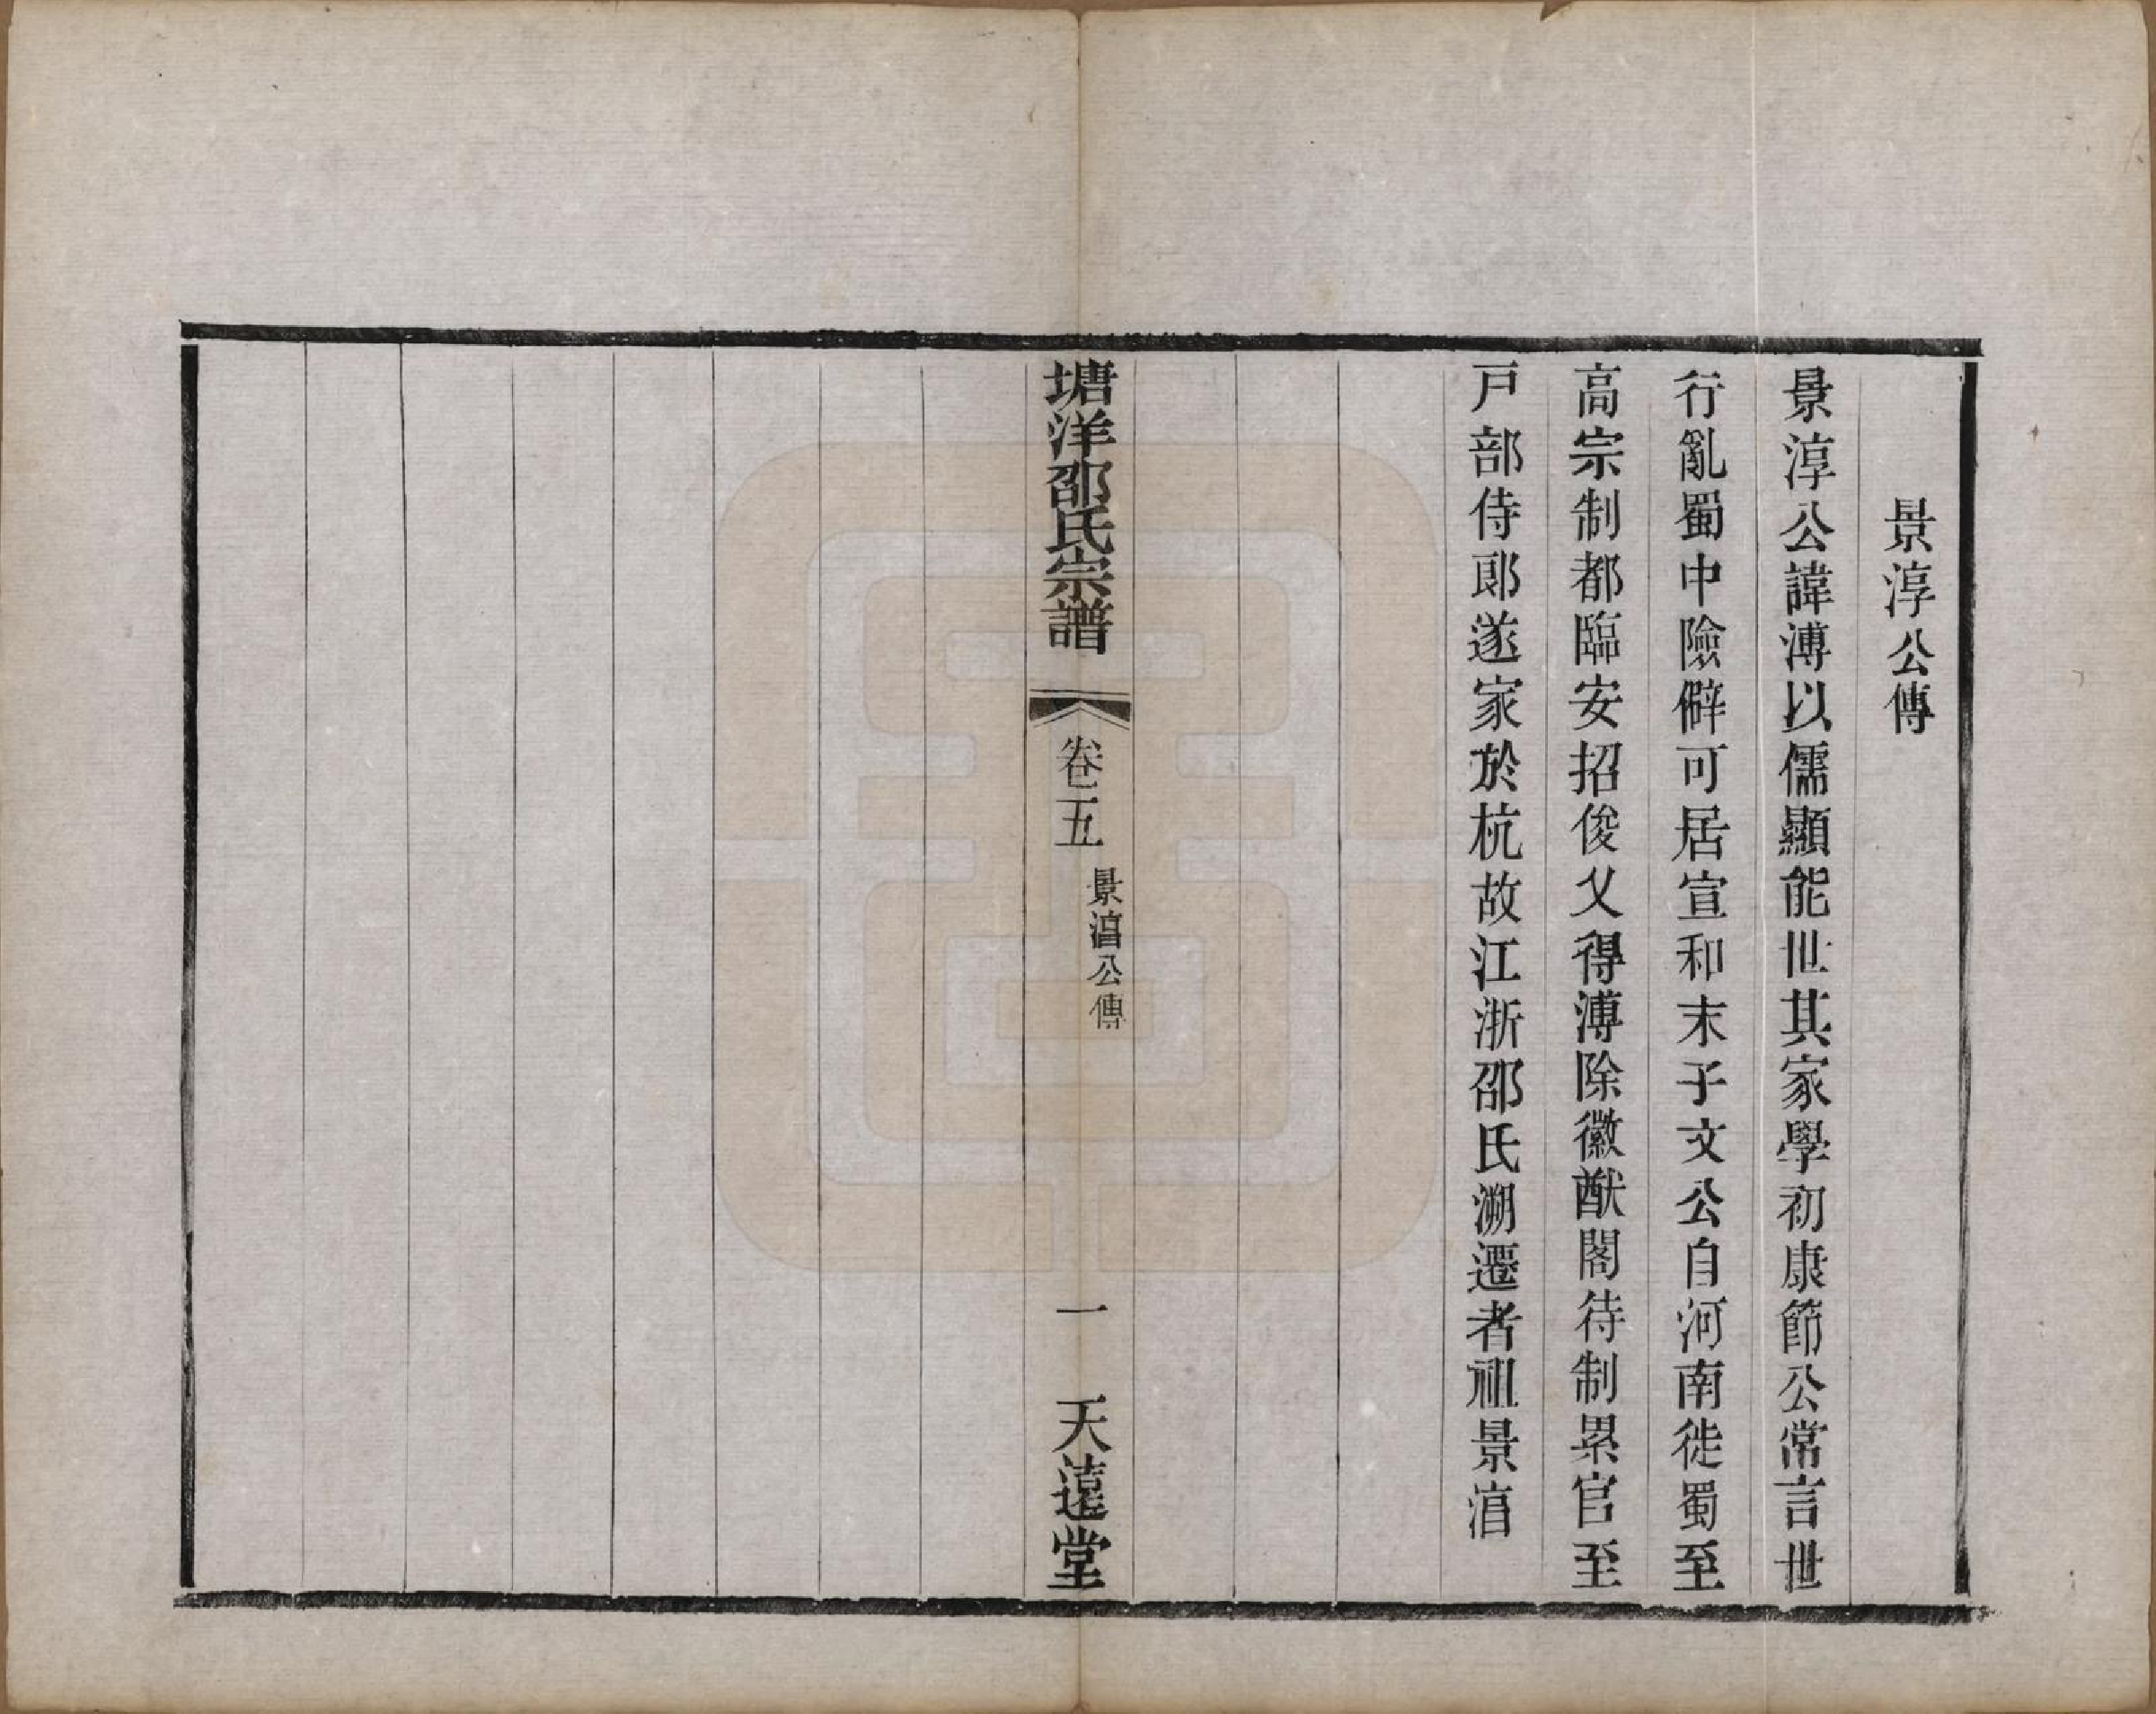 景淳公傳
景淳公諱溥以儒顯能世其家學初康節公常言世
行亂蜀中險僻可居宣和末子文公自河南徙蜀至
高宗制都臨安招俊乂得溥除徽猷閣待制累官至
戸部侍郎遂家於杭故江浙邵氏溯遷者祖景湻
塘洋邵氏宗譜 卷五 景湻公傳 一 天遠堂